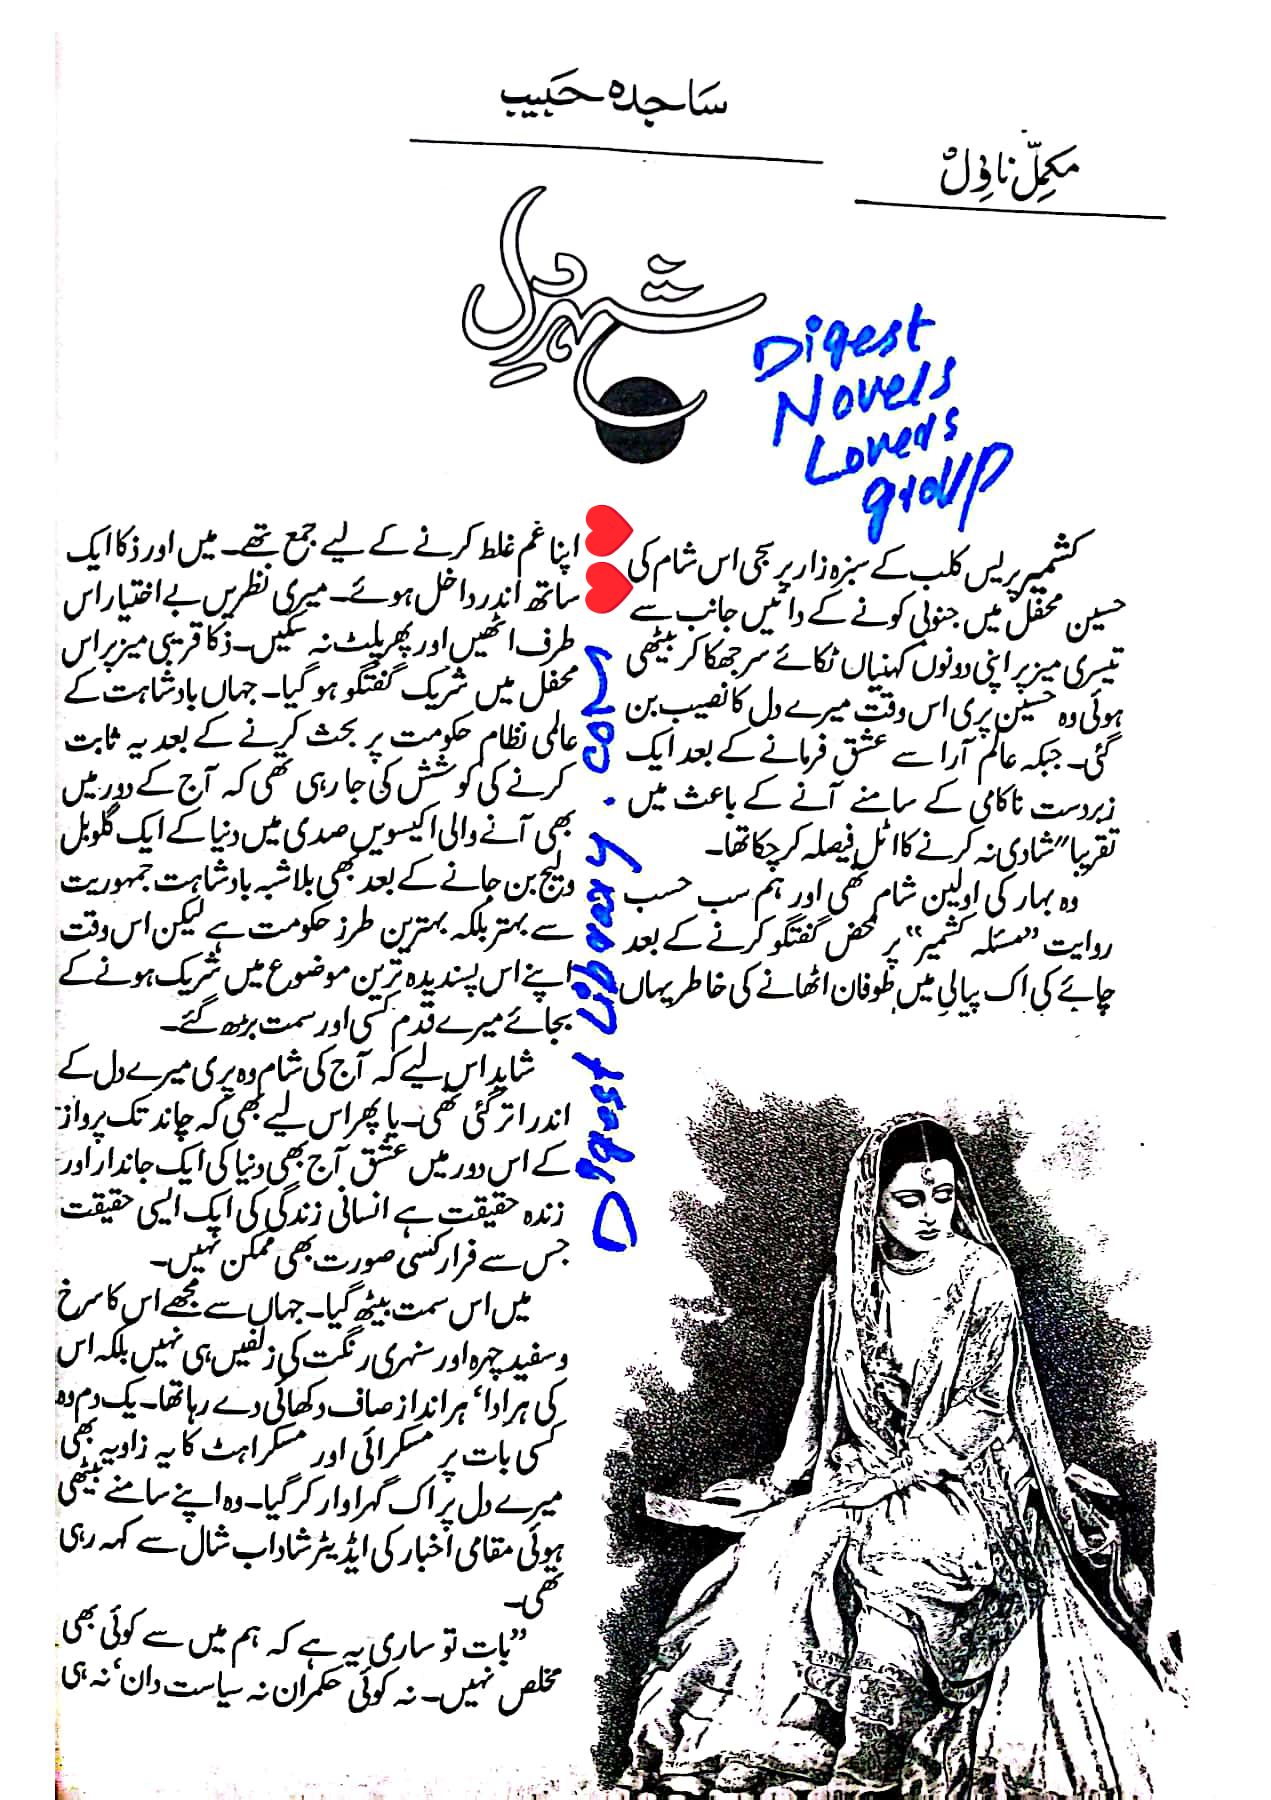 ساجدہ حبیب
مکمل ناول
شہرِ دل
Digest
Novels
Lovers
group
کشمیر پریس کلب کے سبزہ زار پر سجی اس شام کی
حسین محفل میں جنوبی کونے کے دائیں جانب سے
تیسری میز پر اپنی دونوں کہنیاں ٹکائے سر جھکا کر بیٹھی
ہوئی وہ حسین پری اس وقت میرے دل کا نصیب بن
گئی۔ جبکہ عالم آرا سے عشق فرمانے کے بعد ایک
زبردست ناکامی کے سامنے آنے کے باعث میں
تقریبا" شادی نہ کرنے کا اٹل فیصلہ کر چکا تھا۔
وہ بہار کی اولین شام تھی اور ہم سب حسب
روایت "مسئلہ کشمیر" پر محض گفتگو کرنے کے بعد
چائے کی اک پیالی میں طوفان اٹھانے کی خاطر یہاں
اپنا غم غلط کرنے کے لیے جمع تھے۔ میں اور ذکا ایک
ساتھ اندر داخل ہوئے۔ میری نظریں بے اختیار اس
طرف اٹھیں اور پھر پلٹ نہ سکیں۔ ذکا قریبی میز پر اس
محفل میں شریک گفتگو ہو گیا۔ جہاں بادشاہت کے
عالمی نظام حکومت پر بحث کرنے کے بعد یہ ثابت
کرنے کی کوشش کی جا رہی تھی کہ آج کے دور میں
بھی آنے والی اکیسویں صدی میں دنیا کے ایک گلوبل
ولیج بن جانے کے بعد بھی بلاشبہ بادشاہت جمہوریت
سے بہتر بلکہ بہترین طرز حکومت ہے لیکن اس وقت
اپنے اس پسندیدہ ترین موضوع میں شریک ہونے کے
بجائے میرے قدم کسی اور سمت بڑھ گئے۔
شاید اس لیے کہ آج کی شام وہ پری میرے دل کے
اندر اتر گئی تھی۔ یا پھر اس لیے بھی کہ چاند تک پرواز
کے اس دور میں عشق آج بھی دنیا کی ایک جاندار اور
زندہ حقیقت ہے انسانی زندگی کی ایک ایسی حقیقت
جس سے فرار کسی صورت بھی ممکن نہیں۔
میں اس سمت بیٹھ گیا۔ جہاں سے مجھے اس کا سرخ
و سفید چہرہ اور سنہری رنگت کی زلفیں ہی نہیں بلکہ اس
کی ہر ادا' ہر انداز صاف دکھائی دے رہا تھا۔ یک دم وہ
کسی بات پر مسکرائی اور مسکراہٹ کا یہ زاویہ بھی
میرے دل پر اک گہرا وار کر گیا۔ وہ اپنے سامنے بیٹھی
ہوئی مقامی اخبار کی ایڈیٹر شاداب شال سے کہہ رہی
تھی۔
"بات تو ساری یہ ہے کہ ہم میں سے کوئی بھی
مخلص نہیں۔ نہ کوئی حکمران نہ سیاست دان' نہ ہی
Digest Library.com